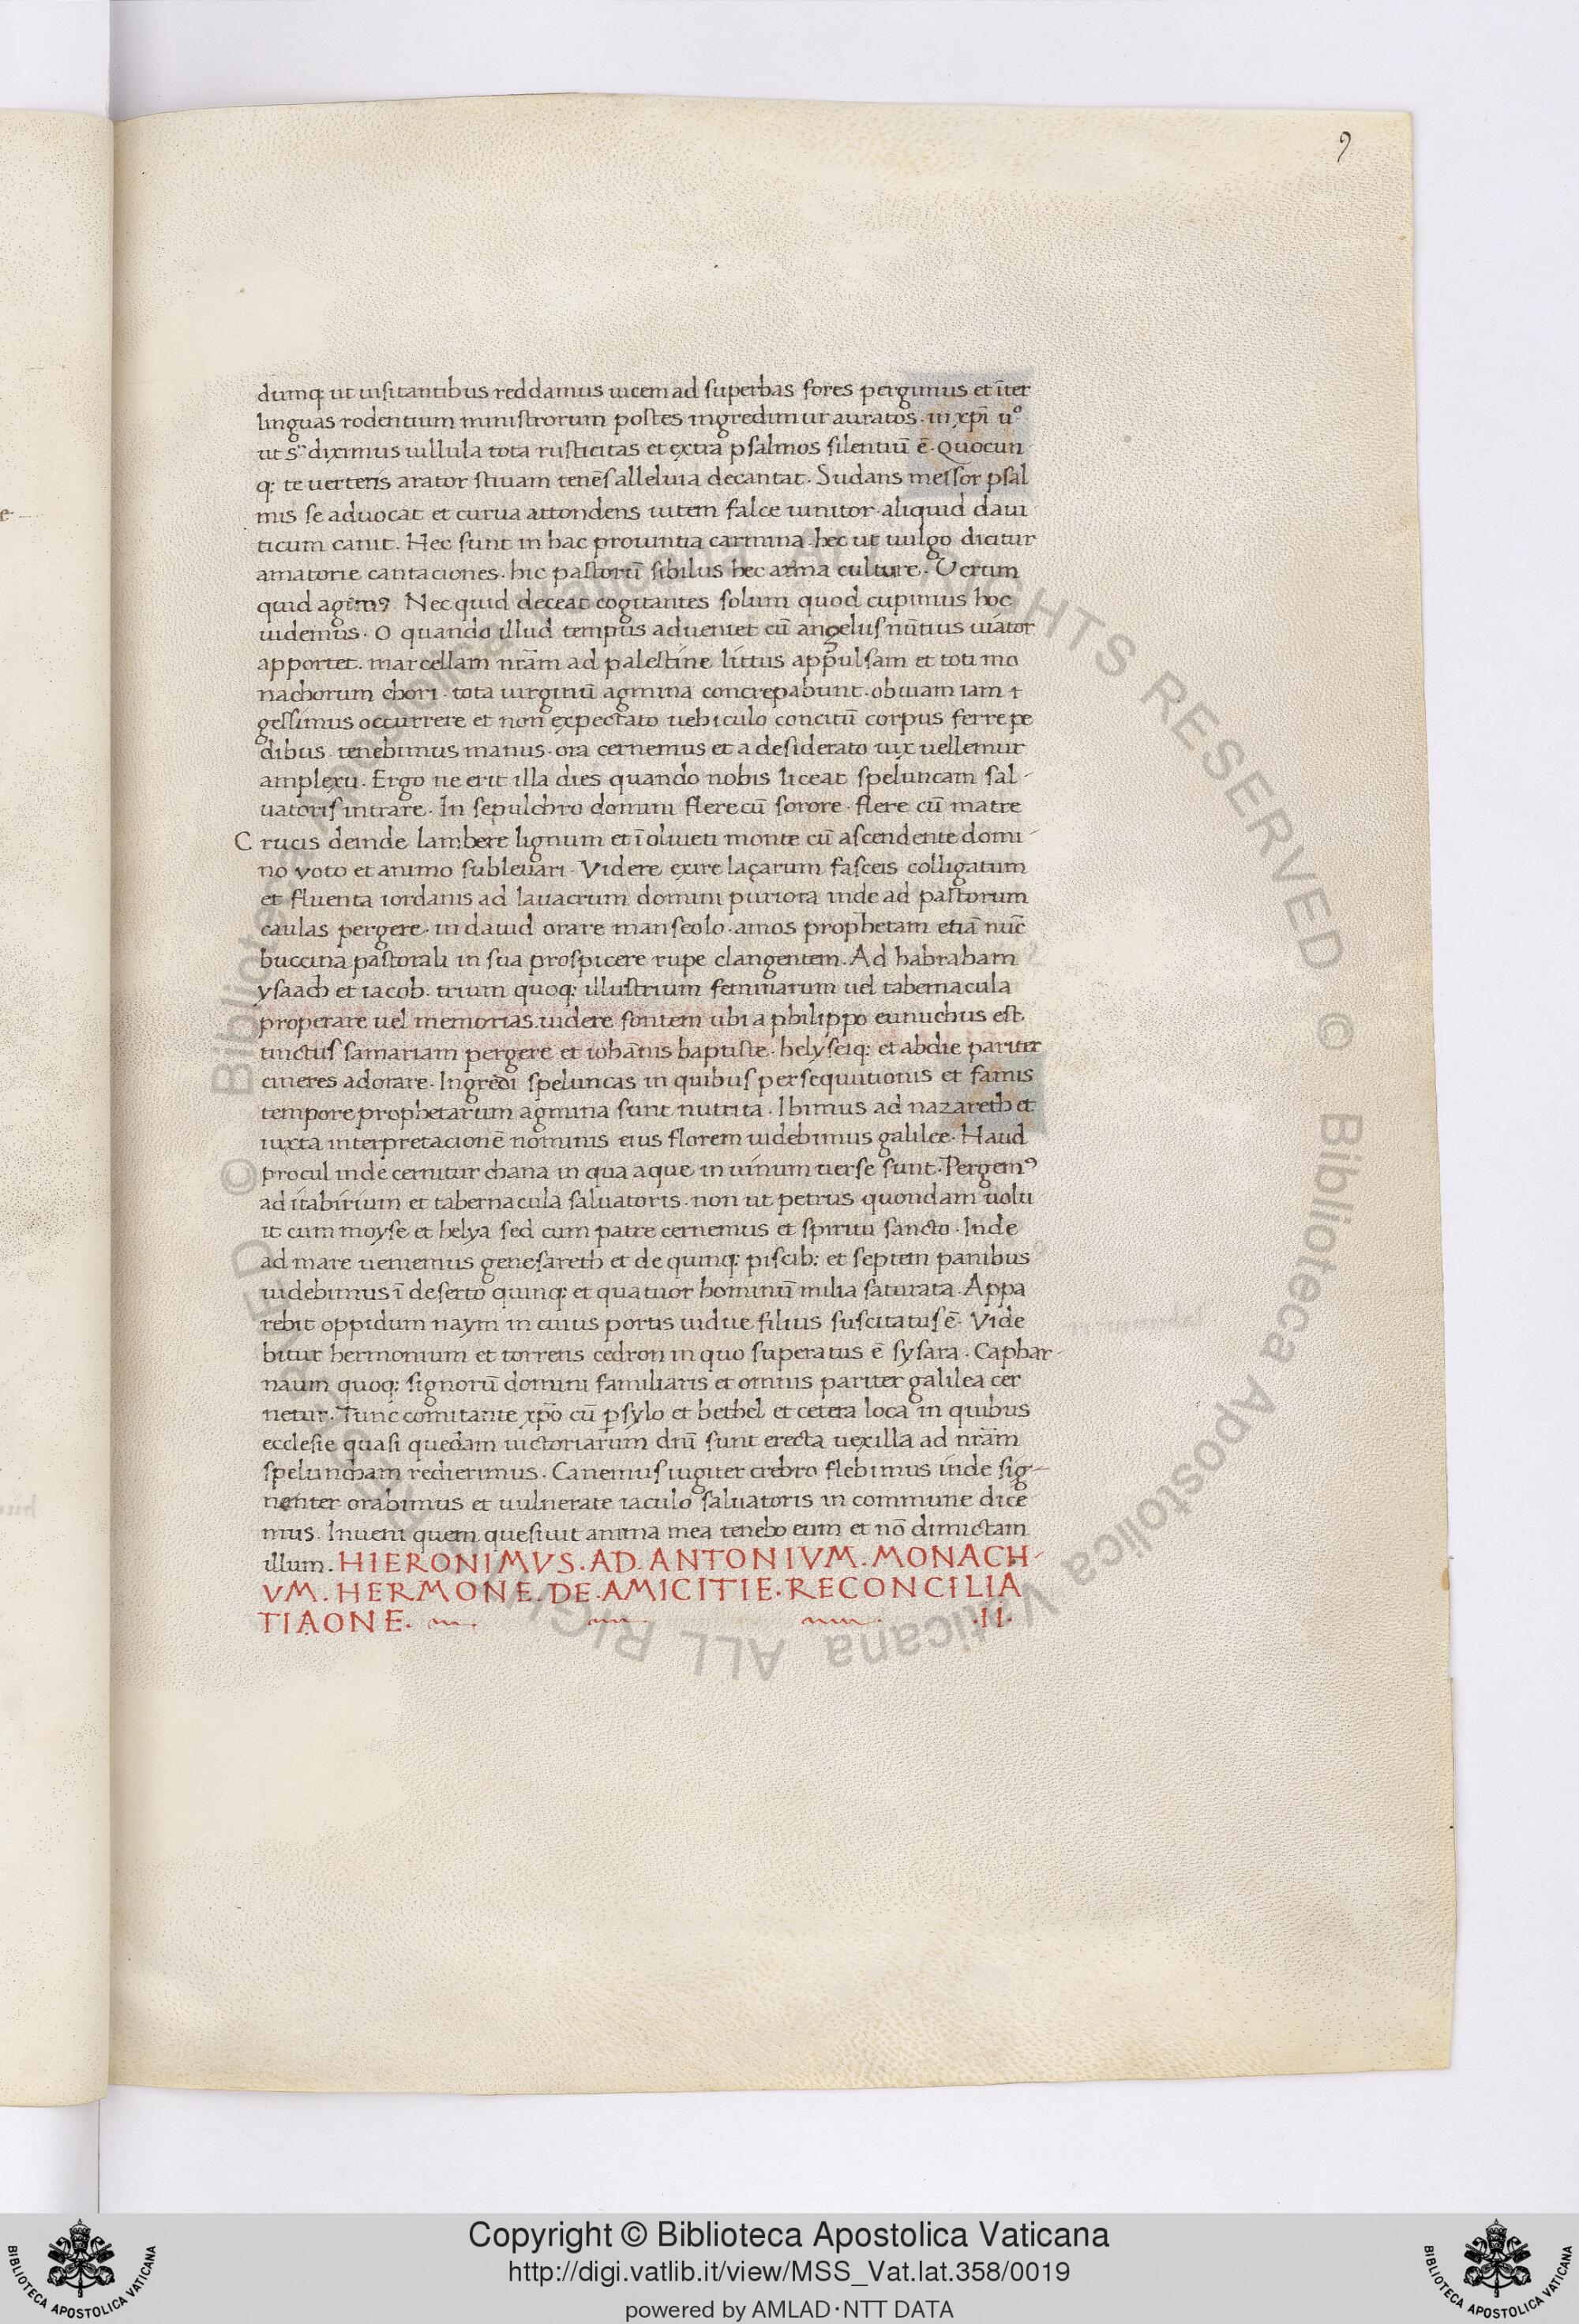 9
dumq; ut uisitantibus reddamus uicem ad superbas fores pergimus et īter
linguas rodentium ministrorum postes ingredimur auratos. in xp̄i uº
ut s̄ diximus uillula tota rusticitas et extra psalmos silentiū ē. Quocun
q; te uerteris arator stiuam tenēs alleluia decantat. Sudans messor psal
mis se aduocat et curua attondens uitem falce uinitor aliquid daui
ticum canit. Hec sunt in hac prouintia carmina. hec ut uulgo dicitur
amatorie cantaciones. hic pastorū sibilus hec arma culture. Verum
quid agimꝰ Nec quid deceat cogitantes solum quod cupimus hoc
uidemus. O quando illud tempus adueniet cū angelus nūtius uiator
apportet. marcellam nr̄am ad palestine littus appulsam et toti mo
nachorum chori. tota uirginū agmina concrepabunt. obuiam iam
gessimus occurrere et non expectato uehiculo concitū corpus ferre pe
dibus. tenebimus manus. ora cernemus et a desiderato uix uellemur
amplexu. Ergo ne erit illa dies quando nobis liceat speluncam sal-
uatoris intrare. In sepulchro domini flere cū sorore. flere cū matre
Crucis deinde lambere lignum et ī oliueti monte cū ascendente domi-
no voto et animo subleuari. Videre exire laçarum fasceis colligatum
et fluenta iordanis ad lauacrum domini puriora inde ad pastorum
caulas pergere. in dauid orare manseolo. amos prophetam etiā nūc
buccina pastorali in sua prospicere rupe clangentem. Ad habraham
ysaach et iacob. trium quoq; illustrium feminarum uel tabernacula
properare uel memorias. uidere fontem ubi a philippo eunuchus est
tinctus samariam pergere et iohānis baptiste. helyseiq; et abdie pariter
cineres adorare. Ingredi speluncas in quibus persequutionis et famis
tempore prophetarum agmina sunt nutrita. Ibimus ad nazareth et
iuxta interpretacionē nominis eius florem uidebimus galilee. Haud
procul inde cernitur chana in qua aque in uinum uerse sunt. Pergemꝰ
ad itabirium et tabernacula saluatoris. non ut petrus quondam uolu
it cum moyse et helya sed cum patre cernemus et spiritu sancto. Inde
ad mare ueniemus genesareth et de quinq; piscib; et septem panibus
uidebimus ī deserto quinq; et quatuor hominū milia saturata. Appa
rebit oppidum naym in cuius portis uidue filius suscitatus ē. Vide
bitur hermonium et torrens cedron in quo superatus ē sysara. Caphar-
naum quoq; signorū domini familiaris et omnis pariter galilea cer
netur. Tunc comitante xp̄o cū psylo et bethel et cetera loca in quibus
ecclesie quasi quedam uictoriarum dn̄i sunt erecta uexilla ad nr̄am
speluncham redierimus. Canemus iugiter crebro flebimus inde sig-
nenter orabimus et uulnerate iaculo saluatoris in commune dice
mus. Inueni quem quesiuit anima mea tenebo eum et nō dimictam
illum. HIERONIMVS. AD. ANTONIVM. MONACH-
VM. HERMONE. DE. AMICITIE. RECONCILIA
TIAONE. .II.
© Biblioteca Apostolica Vaticana ALL RIGHTS RESERVED
Copyright © Biblioteca Apostolica Vaticana
http://digi.vatlib.it/view/MSS_Vat.lat.358/0019
powered by AMLAD·NTT DATA
BIBLIOTECA APOSTOLICA VATICANA
BIBLIOTECA APOSTOLICA VATICANA